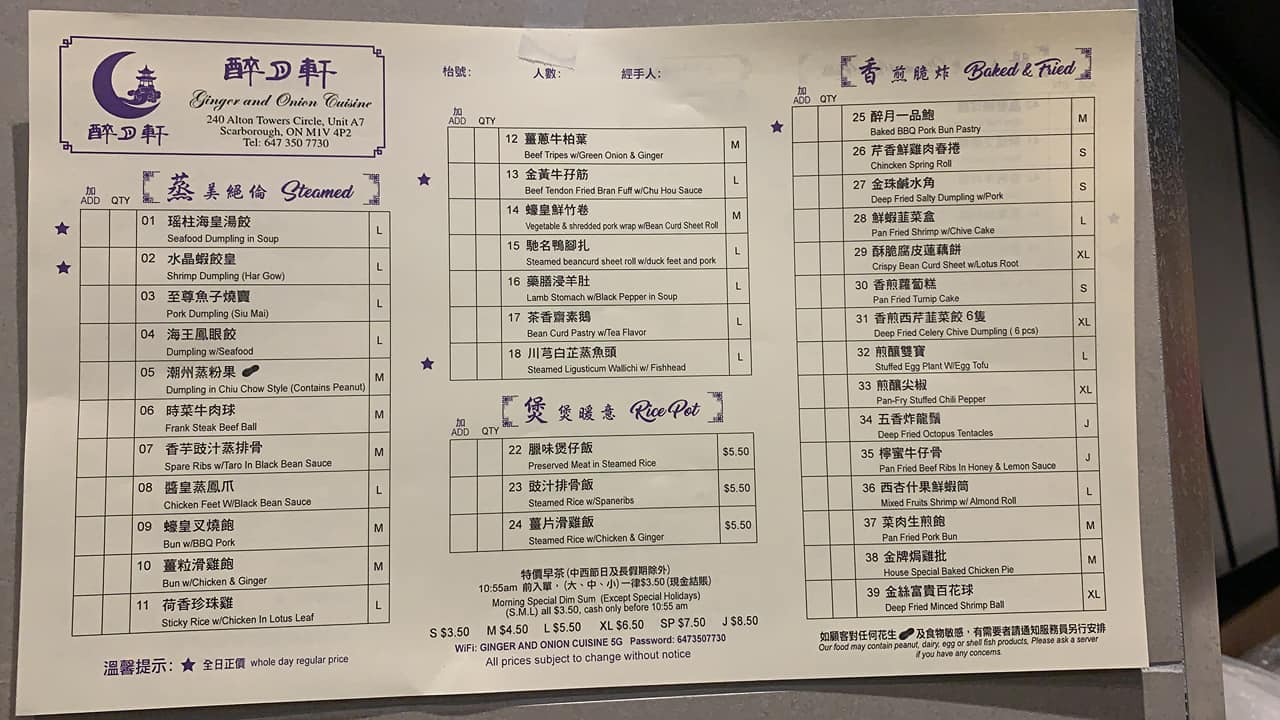 醉月軒
醉月軒
Ginger and Onion Cuisine
240 Alton Towers Circle, Unit A7
Scarborough, ON M1V 4P2
Tel: 647 350 7730
加
ADD QTY
蒸 美絕倫 Steamed
01 瑶柱海皇湯餃
Seafood Dumpling in Soup L
02 水晶蝦餃皇
Shrimp Dumpling (Har Gow) L
03 至尊魚子燒賣
Pork Dumpling (Siu Mai) L
04 海王鳳眼餃
Dumpling w/Seafood L
05 潮州蒸粉果
Dumpling in Chiu Chow Style (Contains Peanut) M
06 時菜牛肉球
Frank Steak Beef Ball M
07 香芋豉汁蒸排骨
Spare Ribs w/Taro In Black Bean Sauce M
08 醬皇蒸鳳爪
Chicken Feet W/Black Bean Sauce L
09 蠔皇叉燒飽
Bun w/BBQ Pork M
10 薑粒滑雞飽
Bun w/Chicken & Ginger M
11 荷香珍珠雞
Sticky Rice w/Chicken In Lotus Leaf L
溫馨提示: 全日正價 whole day regular price
枱號: 人數: 經手人:
加
ADD QTY
12 薑蔥牛柏葉
Beef Tripes w/Green Onion & Ginger M
13 金黃牛孖筋
Beef Tendon Fried Bran Fuff w/Chu Hou Sauce L
14 蠔皇鮮竹卷
Vegetable & shredded pork wrap w/Bean Curd Sheet Roll M
15 馳名鴨腳扎
Steamed beancurd sheet roll w/duck feet and pork L
16 藥膳浸羊肚
Lamb Stomach w/Black Pepper in Soup L
17 茶香齋素鵝
Bean Curd Pastry w/Tea Flavor L
18 川芎白芷蒸魚頭
Steamed Ligusticum Wallichi w/ Fishhead L
加
ADD QTY
煲 煲暖意 Rice Pot
22 臘味煲仔飯
Preserved Meat in Steamed Rice $5.50
23 豉汁排骨飯
Steamed Rice w/Spaneribs $5.50
24 薑片滑雞飯
Steamed Rice w/Chicken & Ginger $5.50
特價早茶 (中西節日及長假期除外)
10:55am 前入單，(大、中、小) 一律$3.50 (現金結賬)
Morning Special Dim Sum (Except Special Holidays)
(S.M.L) all $3.50, cash only before 10:55 am
S $3.50 M $4.50 L $5.50 XL $6.50 SP $7.50 J $8.50
WiFi: GINGER AND ONION CUISINE 5G Password: 6473507730
All prices subject to change without notice
香 煎脆炸 Baked & Fried
加
ADD QTY
25 醉月一品鮑
Baked BBQ Pork Bun Pastry M
26 芹香鮮雞肉春捲
Chincken Spring Roll S
27 金珠鹹水角
Deep Fried Salty Dumpling w/Pork S
28 鮮蝦韮菜盒
Pan Fried Shrimp w/Chive Cake L
29 酥脆腐皮蓮藕餅
Crispy Bean Curd Sheet w/Lotus Root XL
30 香煎蘿蔔糕
Pan Fried Turnip Cake S
31 香煎西芹韮菜餃 6隻
Deep Fried Celery Chive Dumpling ( 6 pcs) XL
32 煎釀雙寶
Stuffed Egg Plant W/Egg Tofu L
33 煎釀尖椒
Pan-Fry Stuffed Chili Pepper XL
34 五香炸龍鬚
Deep Fried Octopus Tentacles J
35 檸蜜牛仔骨
Pan Fried Beef Ribs In Honey & Lemon Sauce J
36 西杏什果鮮蝦筒
Mixed Fruits Shrimp w/ Almond Roll L
37 菜肉生煎飽
Pan Fried Pork Bun M
38 金牌焗雞批
House Special Baked Chicken Pie M
39 金絲富貴百花球
Deep Fried Minced Shrimp Ball XL
如顧客對任何花生 及食物敏感，有需要者請通知服務員另行安排
Our food may contain peanut, dairy, egg or shell fish products, Please ask a server
if you have any concerns.